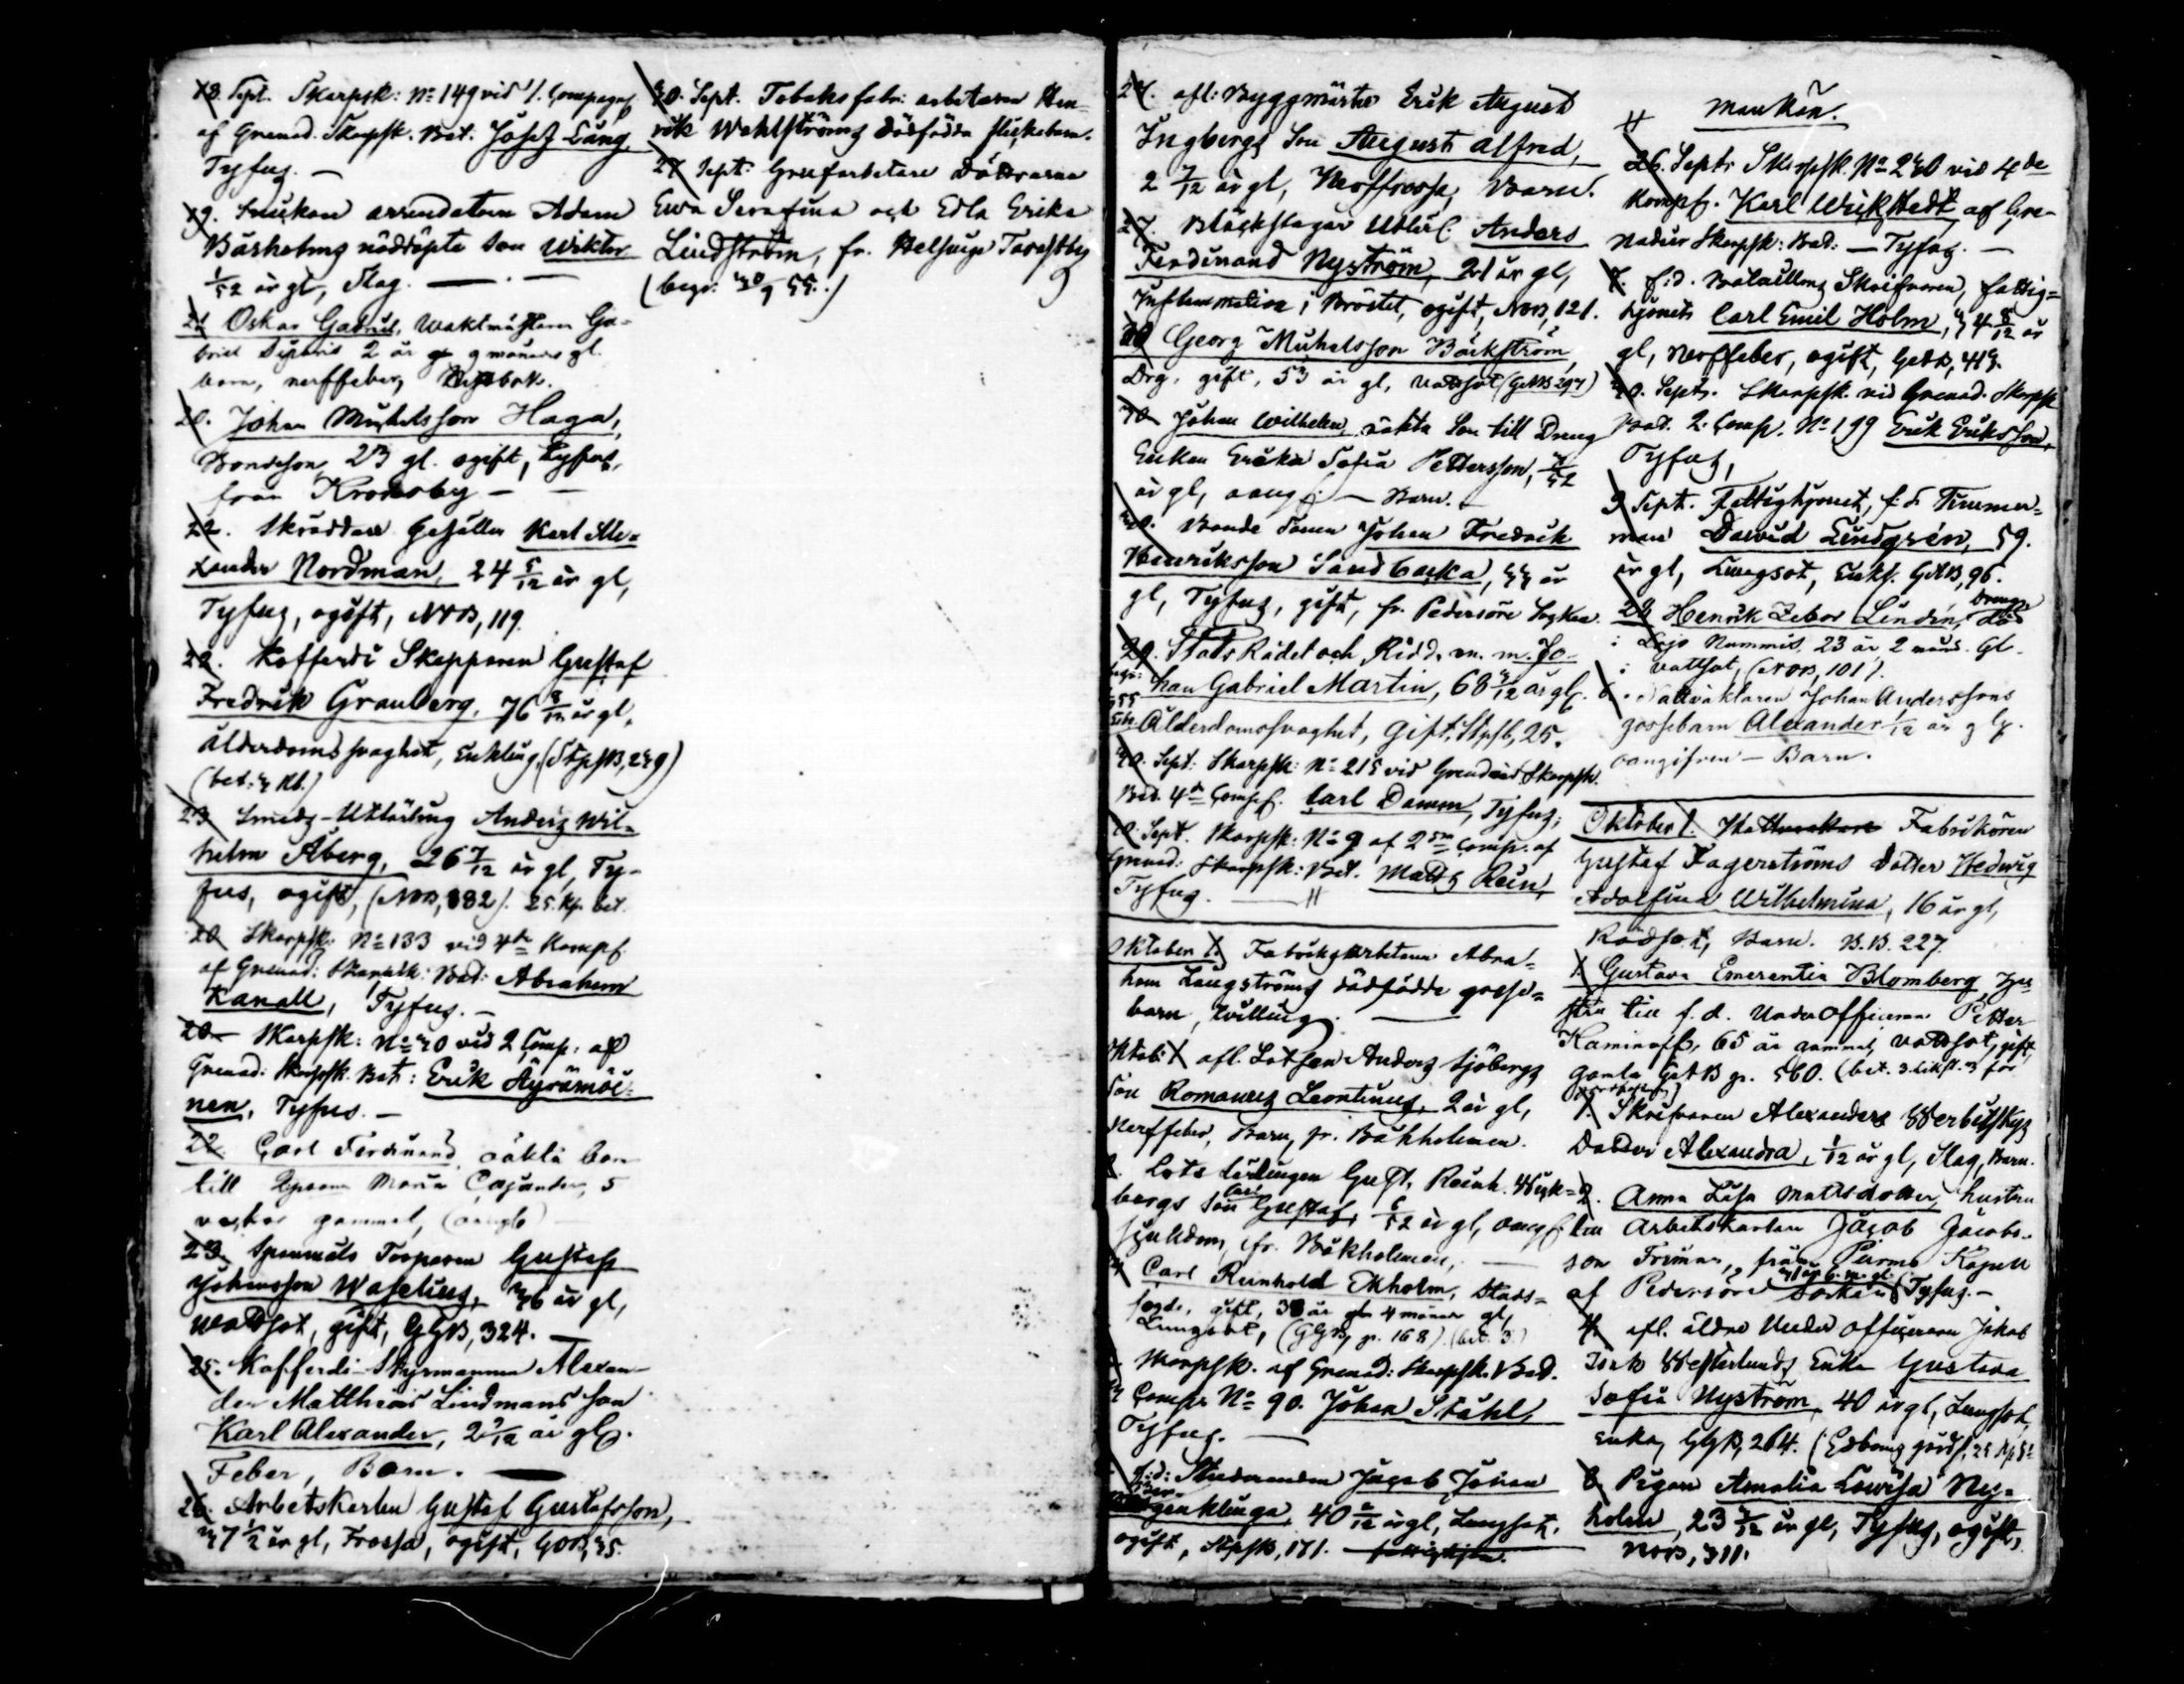 18. Sept. Skarpsk: No 149 vid 1. Compagni
af Grenad. Skarpsk. Bat: Josef Lång
Tyfus. —
19. Enkan arrendatorn Adam
Bärholms nöddöpte son Wiktor
1/52 år gl, Slag. — . —
21 Oskar Gabriel, Waktmästaren Ga-
briel 2 år 9 månader gl.
barn, nerffeber,
20. Johan Michelsson Haga,
Bondeson 23 gl. ogift, Tyfus,
från Kronoby — —
22. Skräddare Gesällen Karl Ale-
xander Nordman, 24 5/12 år gl,
Tyfus, ogift, NVB, 119.
22. Kofferdi Skepparen Gustaf
Fredrik Granberg, 76 8/12 år gl,
ålderdomssvaghet, Enkling, (StpsB, 239)
(bet: 3 Rb.)
23. Smeds-Utlärling Anders Wil-
helm Åberg, 26 7/12 år gl, Ty-
fus, ogift, (NVB, 382). 25. Kp. bet.
20 Skarpsk: No 133 vid 4de Komp.
af Grenad: Skarpsk: Bat: Abraham
Kanall, Tyfus. —
20— Skarpsk: No 30 vid 2 Comp. af
Grenad: Skarpsk. Bat: Erik Äyrämöi-
nen, Tyfus. —
22. Carl Ferdinand oäkta son
till Maria Cajander, 5
veckor gammal, (oangb)
23. Torparen Gustaf
Johansson Waselius, 36 år gl,
Wattsot, gift, GGB, 324. —
25. Kofferdi-Styrmannen Alexan-
der Matthias Lindmans son
Karl Alexander, 2 2/12 år gl.
Feber, Barn. —
26. Arbetskarlen Gustaf Gustafsson,
37 1/2 år gl, Frossa, ogift, GOB, 35.
30. Sept. Tobaksfabr: arbetaren Hen-
rik Wahlströms dödfödda flickebarn.
27 Sept. Grufarbetare Döttrarna
Ewa Serafina och Edla Erika
Lindström, fr. Helsinge Tavastby
(begr. 30/9 55.)
24. afl: Byggmäster Erik August
Ingbergs Son August Alfred,
2 7/12 år gl, Nerffrossa, Barn.
27. Bläckslagar Utlärl. Anders
Ferdinand Nyström, 21 år gl,
Inflammation i Bröstet, ogift, NVB, 121.
Georg Michelsson Bäckström,
Drg, gift, 53 år gl, vattsot (GNB 297)
30 Johan Wilhelm, oäkta Son till Dreng
Enkan Erika Sofia Pettersson, 7/52
år gl, oang. — Barn. —
30. Bonde Sonen Johan Fredrik
Henriksson Sandbacka, 33 år
gl, Tyfus, gift, fr. Pedersöre Socken.
29. StatsRådet och Ridd. m. m. Jo-
han Gabriel Martin, 68 3/12 år gl.
Ålderdomssvaghet, Gift, StpsB, 25.
30. Sept: Skarpsk: No 215 vid Grenadier Skarpsk.
Bat. 4de Comp. Carl Damm, Tyfus;
Sept. Skarpsk: No 9 af 2dra Comp. af
Grenad: Skarpsk: Bat. Matts Rein,
Tyfus. — #
Oktober 1. Fabriksarbetaren Abra-
ham Långströms dödfödde gosse-
barn, Tvilling. —
Oktob: 1 afl. Lotsen Anders Sjöbergs
Son Romanus Leontinus, 2 år gl,
Nerffeber, Barn, fr. Båkholmen.
2. Lots Lärlingen Gust. Reinh. Wik-
bergs Son Carl Gustaf, 6/52 år gl, oangf.
sjukdom, fr. Båkholmen, —
Carl Reinhold Ekholm, Stads-
fogde, gift, 38 år 4 månader gl,
Lungsot, (GGB, p. 168). (bet. 3.)
Skarpsk. af Grenad: Skarpsk. Bat.
Comp. No 90. Johan Ståhl,
Tyfus. —
f: d: Studeranden Jacob Johan
genklinga, 40 2/12 år gl, Lungsot,
ogift, StpsB, 171.
# Mankön.
26. Septr Skarpsk. No 230 vid 4de
Komp. Karl Wickstedt af Gre-
nadier Skarpsk: Bat: — Tyfus. —
7. f:d. Bataillons Skrifvaren, fattig-
hjonets Carl Emil Holm, 34 8/12 år
gl, Nerffeber, ogift, GetB, 413.
30. Septr. Skarpsk. vid Grenad. Skarpsk
Bat. 2. Comp. No 199 Erik Eriksson,
Tyfus,
9 Sept. Fattighjonet, f.d. Timmer-
man David Lindgrén, 59.
år gl, Lungsot, Enkl. GNB, 96.
28 Henrik Zebor Lindén, Dreng, död
i Lojo Nummis, 23 år, 2 mån. gl.
i vattsot, (NVB, 101).
Nattväktaren Johan Anderssons
gossebarn Alexander 1/12 år gl.
oangifven — Barn.
Oktober 1. Fabrikören
Gustaf Fagerströms dotter Hedwig
Adolfina Wilhelmina, 16 år gl,
Rödsot, Barn. B.B. 227.
1. Gustava Emerentia Blomberg Hu-
stru till f. d. Under Officeren Petter
Kaminoff, 65 år gammal, Vattsot, gift,
gamla GetB p. 560. (bet. 3. likst. 3 för
1. Skrifvaren Alexanders Werbitskys
Dotter Alexandra, 1/12 år gl, Slag, Barn.
2. Anna Lisa Mattsdotter, hustru
till Arbetskarlen Jacob Jacobs-
son Friman, från Purmo Kapell
af Pedersöre Socken 31 år 6. m. gl. Tyfus. —
4. afl. äldre Under officeraren Jakob
Isak Westerlunds Enka Gustava
Sofia Nyström, 40 år gl, Lungsot,
Enka, GGB, 264. (Edboms gård,
6. Pigan Amalia Lowisa Ny-
holm, 23 3/12 år gl, Tyfus, ogift,
NVB, 311.